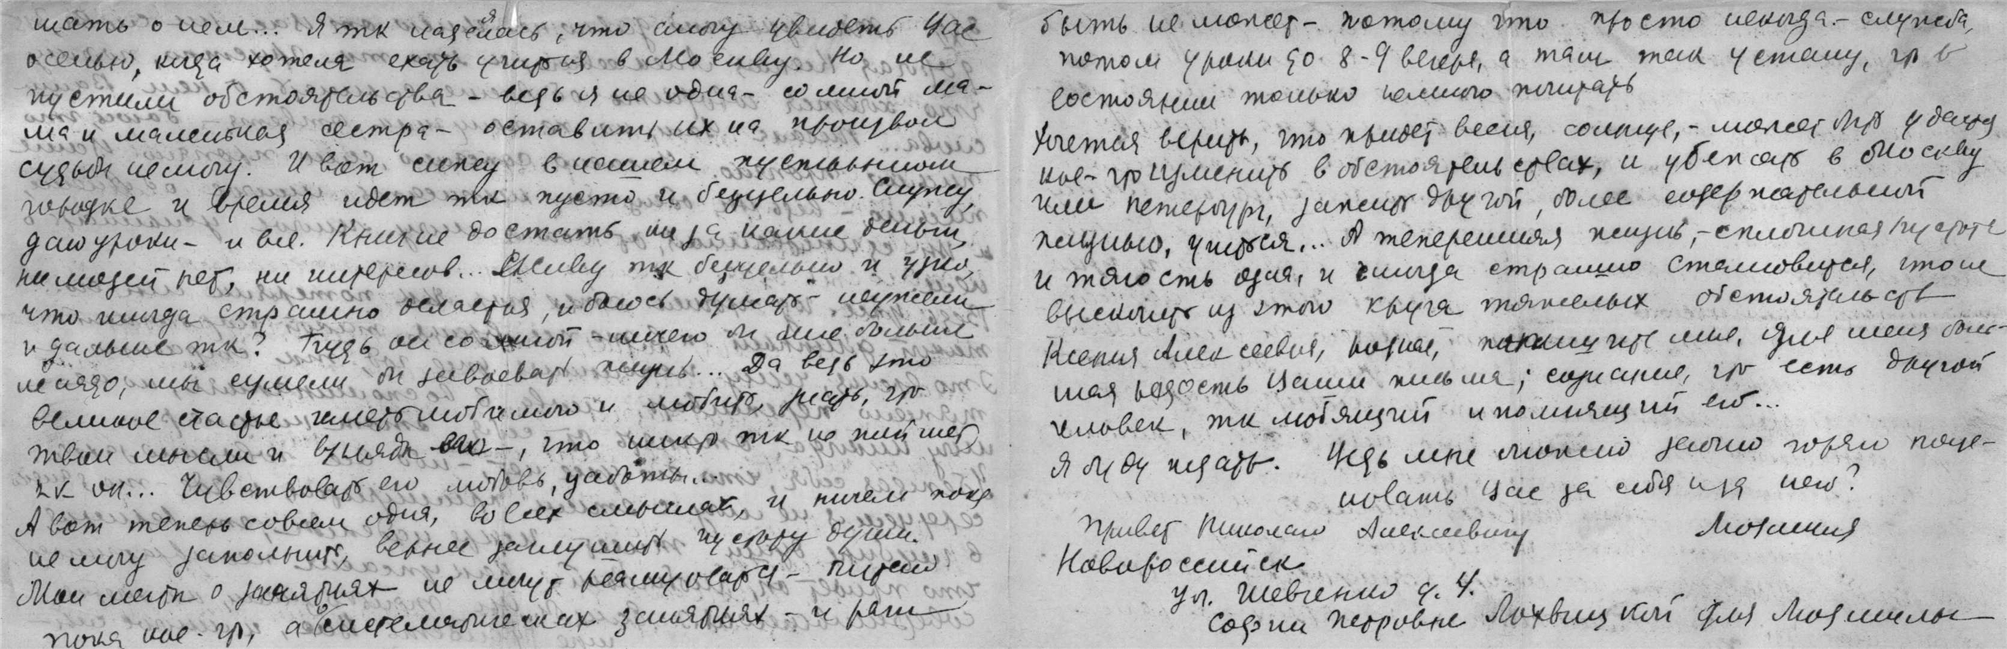 шать о нем... Я тк надеялась, что смогу увидеть Вас
осенью, когда хотела ехать учиться в Москву. Но не
пустили обстоятельства - ведь я не одна - со мной ма-
ма и маленькая сестра - оставить их на произвол
судьбы не могу. И вот сижу в нашем пустынном
городке и время идет тк пусто и бесцельно. Служу,
даю уроки - и все. Книг не достать ни за какие деньги,
ни людей нет, ни интересов... Живу тк бесцельно и узко,
что иногда страшно делается, и боюсь думать - неужели
и дальше тк? Будь он со мной - ничего бы мне больше
не надо, мы сумели бы завоевать жизнь... Да ведь это
великое счастье иметь любимого и любить, знать, что
твои мысли и взгляды, что никто тк не поймет
кк он... Чувствовать его любовь, заботы...
А вот теперь совсем одна, во всех смыслах, и ничем пока
не могу заполнить, вернее заглушить пустоту души.
Мои мечты о занятиях не могут реализоваться - читаю
пока кое-что, а о систематических занятиях - и речи
быть не может - потому что просто некогда - служба,
потом уроки до 8-9 вечера, а там так устану, что в
состоянии только немного почитать
Хочется верить, что придет весна, солнце, - может быть удастся
кое-что изменить в обстоятельствах, и убежать в Москву
или Петербург, зажить другой, более содержательной
жизнью, учиться... А теперешняя жизнь, - сплошная пустота
и тягость одна, и иногда страшно становится, что не
выскочить из этого круга тяжелых обстоятельств
Ксения Алексеевна, родная, пишите мне, для меня боль-
шая радость Ваши письма; сознание, что есть другой
человек, тк любящий и помнящий его...
Я буду ждать. Ведь мне можно заочно горячо поце-
ловать Вас за себя и за него?
Привет Николаю Алексеевичу Людмила
Новороссийск
ул. Шевченко д. 4.
Софии Петровне Лохвицкой для Людмилы